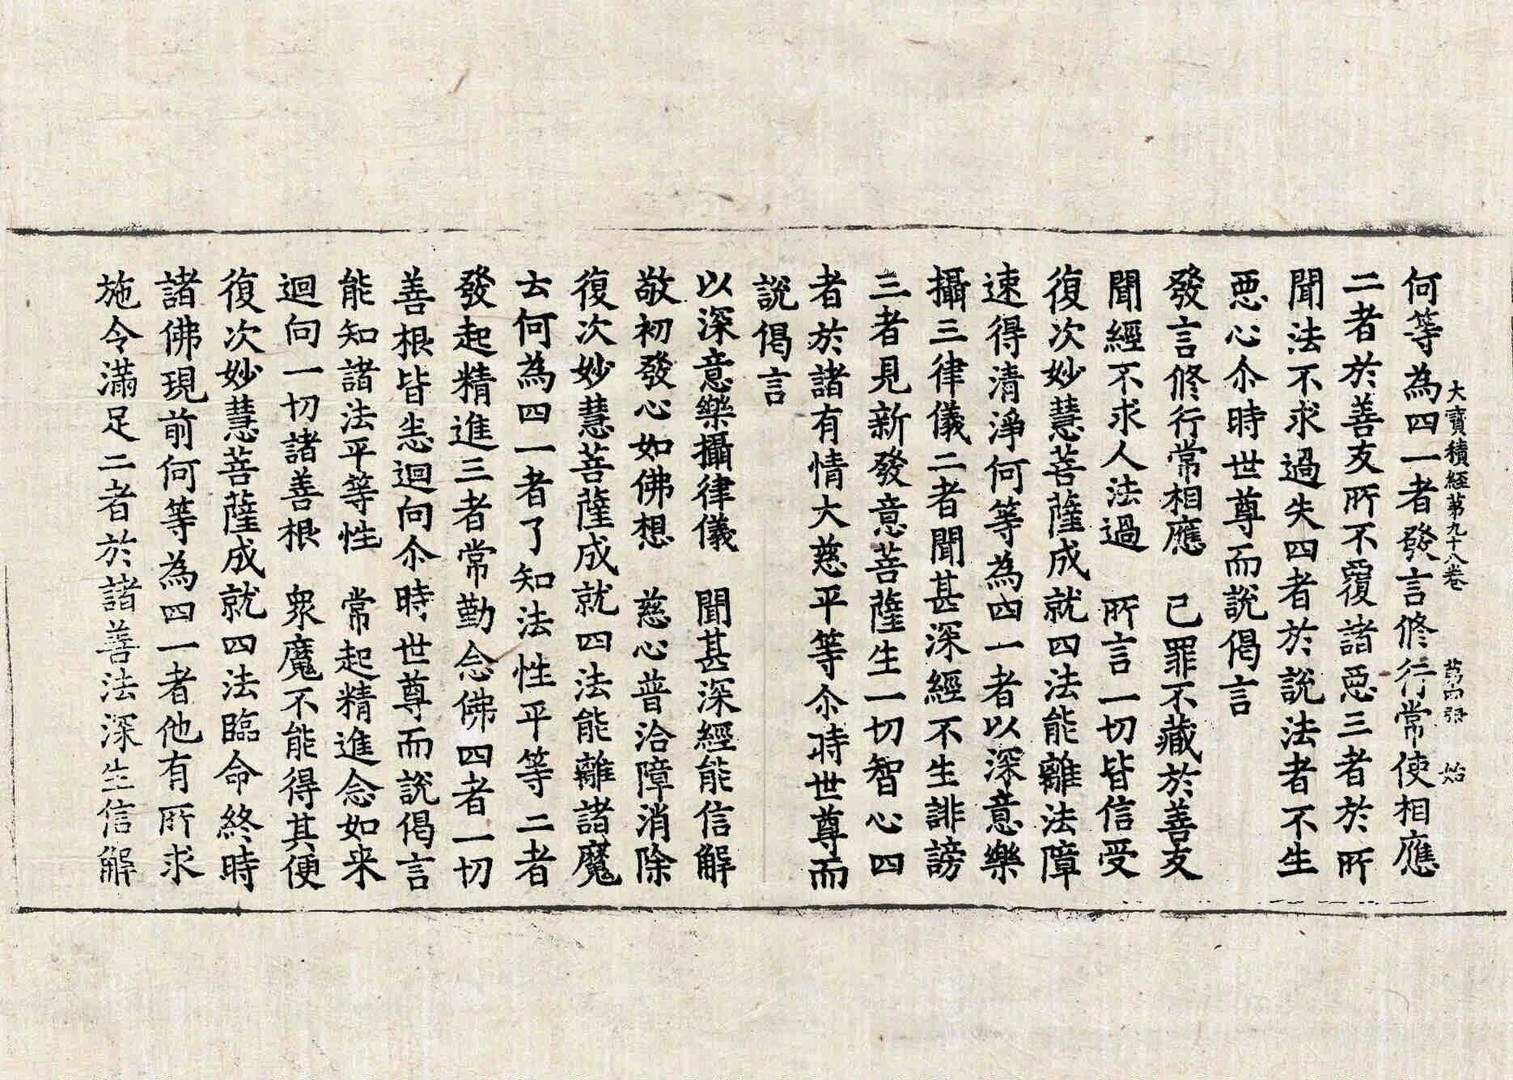 大寶積經第九十八卷　第四張　始
何等為四一者發言修行常使相應
二者於善友所不覆諸惡三者於所
聞法不求過失四者於說法者不生
惡心尒時世尊而說偈言
發言修行常相應　己罪不藏於善友
聞經不求人法過　所言一切皆信受
復次妙慧菩薩成就四法能離法障
速得清淨何等為四一者以深意樂
攝三律儀二者聞甚深經不生誹謗
三者見新發意菩薩生一切智心四
者於諸有情大慈平等尒時世尊而
說偈言
以深意樂攝律儀　聞甚深經能信解
敬初發心如佛想　慈心普洽障消除
復次妙慧菩薩成就四法能離諸魔
云何為四一者了知法性平等二者
發起精進三者常勤念佛四者一切
善根皆悉迴向尒時世尊而說偈言
能知諸法平等性　常起精進念如来
迴向一切諸善根　衆魔不能得其便
復次妙慧菩薩成就四法臨命終時
諸佛現前何等為四一者他有所求
施令滿足二者於諸善法深生信解